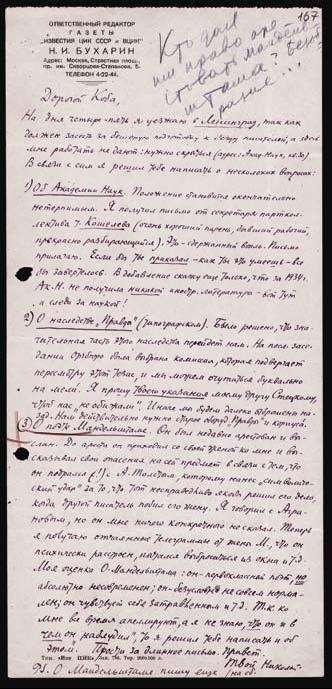 167
ОТВЕТСТВЕННЫЙ РЕДАКТОР
ГАЗЕТЫ
„ИЗВЕСТИЯ ЦИК СССР и ВЦИК"
Н. И. БУХАРИН
Адрес: Москва, Страстная площ.,
пр. им. Скворцова-Степанова, 5.
ТЕЛЕФОН 4-22-44.
Кто дал
им право аре
стовать Мандельш
тама? Безо
разие...
Дорогой Коба,
На дня четыре-пять я уезжаю в Ленинград, так как
должен засесть за бешеную подготовку к съезду писателей, а здесь
мне работать не дают: нужно скрыться (адрес: Акад. Наук, кв. 30)
В связи с сим я решил тебе написать о нескольких вопросах:
1) Об Академии Наук. Положение становится окончательно
нетерпимым. Я получил письмо от секретаря партко
ллектива т. Кошелева (очень хороший парень, бывший рабочий,
прекрасно разбирающийся). Это - сдержанный вопль. Письмо
прилагаю. Если бы ты приказал - как ты это умеешь - все
бы завертелось. В добавление скажу еще только, что за 1934г.
Ак. Н. не получила никакой иностр. литературы - вот тут
и следи за наукой!
2) О наследстве „Правды" (типографском). Было решено, что зна-
чительная часть этого наследства перейдет нам. На посл. засе
дании Оргбюро была выбрана комиссия, которая подвергает
пересмотру этот тезис, и мы можем очутиться буквально
на мели. Я прошу твоего указания моему другу Стецкому,
чтоб нас не обижали. Иначе мы будем далеко отброшены на-
зад. Нам действительно нужно старое оборуд. „Правды" и корпуса.
3) О поэте Мандельштаме. Он был недавно арестован и вы-
слан. До ареста он приходил со своей женой ко мне и вы-
сказывал свои опасения на сей предмет в связи с тем, что
он подрался (!) с А. Толстым, которому нанес „символич-
еский удар" за то, что тот несправедливо якобы решил его дело,
когда другой писатель побил его жену. Я говорил с Агра-
новым, но он мне ничего конкретного не сказал. Теперь
я получаю отчаянные телеграммы от жены М., что он
психически расстроен, пытался выброситься из окна и т.д.
Моя оценка О. Мандельштама: он - первоклассный поэт, но
абсолютно несовременен; он - безусловно не совсем норма-
лен; он чувствует себя затравленным и т.д. Т.к. ко
мне все время апеллируют, а я не знаю, что он и в
чем он „наблудил", то я решил тебе написать и об
этом. Прости за длинное письмо. Привет.
Твой Николай
P.S. О Мандельштаме пишу еще
(на об.